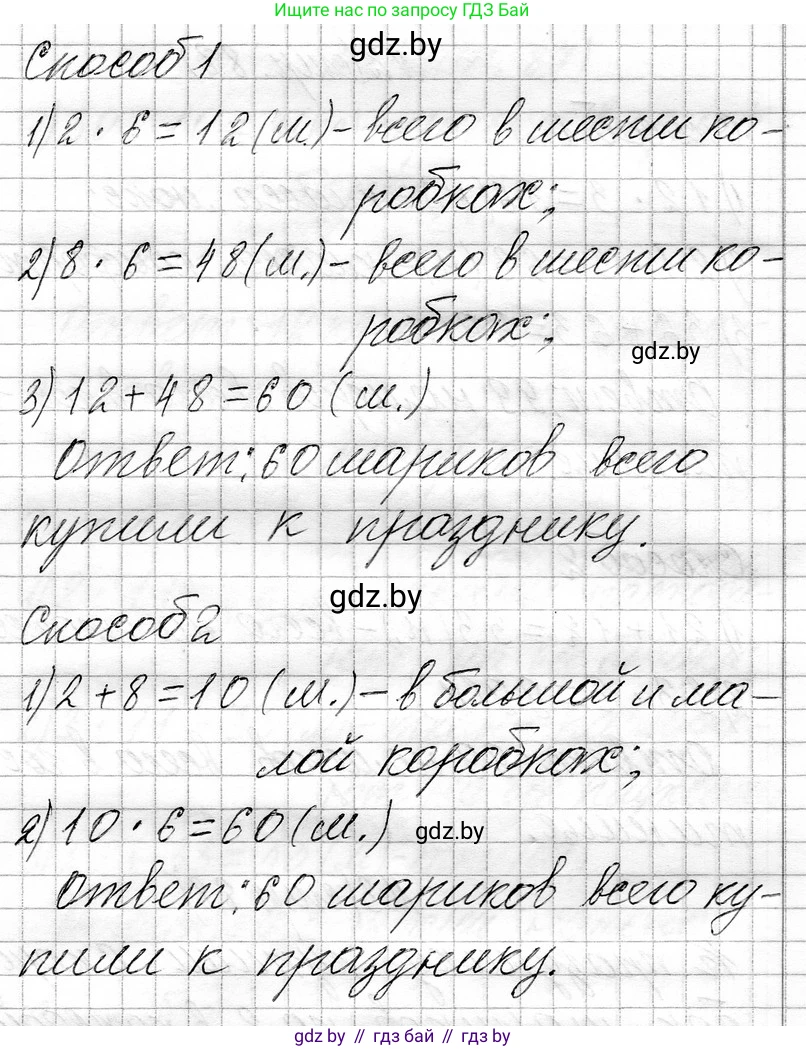 Ищите нас по запросу ГДЗ Бай
gdz.by
Способ 1
1) 2 · 6 = 12 (ш.) - всего в шести ко-
робках;
2) 8 · 6 = 48 (ш.) - всего в шести ко-
робках;
gdz.by
3) 12 + 48 = 60 (ш.)
Ответ: 60 шариков всего
купили к празднику.
gdz.by
Способ 2
1) 2 + 8 = 10 (ш.) - в большой и ма-
лой коробках;
2) 10 · 6 = 60 (ш.)
gdz.by
Ответ: 60 шариков всего ку-
пили к празднику.
gdz.by // гдз бай // gdz.by